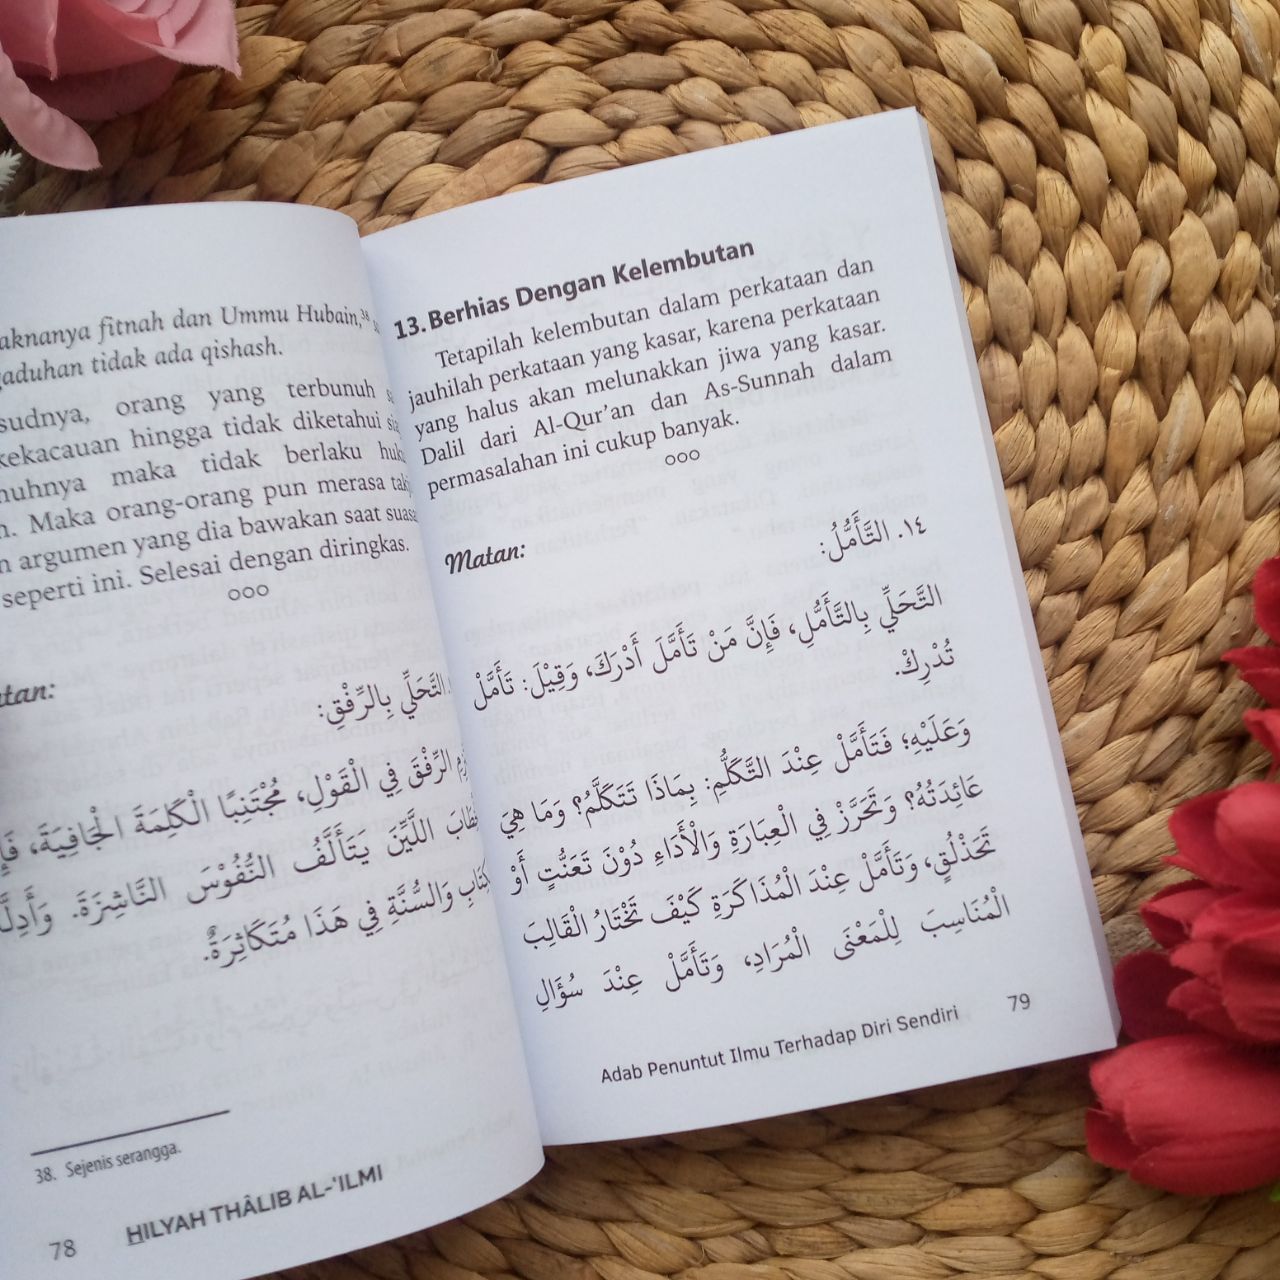 aknanya fitnah dan Ummu Hubain,³⁸
gaduhan tidak ada qishash.
sudnya, orang yang terbunuh
kekacauan hingga tidak diketahui
nuhnya maka tidak berlaku
n. Maka orang-orang pun merasa
n argumen yang dia bawakan saat
seperti ini. Selesai dengan diringkas.
ooo
tan:
التَّحَلِّي بِالرِّفْقِ:
الرِّفْقَ فِي الْقَوْلِ، مُجْتَنِبًا الْكَلِمَةَ الْجَافِيَةَ،
اللَّيِّنَ يَتَأَلَّفُ النُّفُوْسَ النَّاشِزَةَ. وَأَدِلَّ
وَالسُّنَّةِ فِي هَذَا مُتَكَاثِرَةٌ.
38. Sejenis serangga.
78 HILYAH THÂLIB AL-'ILMI
13. Berhias Dengan Kelembutan
Tetapilah kelembutan dalam perkataan dan
jauhilah perkataan yang kasar, karena perkataan
yang halus akan melunakkan jiwa yang kasar.
Dalil dari Al-Qur'an dan As-Sunnah dalam
permasalahan ini cukup banyak.
ooo
Matan:
١٤. التَّأَمُّلُ:
التَّحَلِّي بِالتَّأَمُّلِ، فَإِنَّ مَنْ تَأَمَّلَ أَدْرَكَ، وَقِيْلَ: تَأَمَّلْ
تُدْرِكْ.
وَعَلَيْهِ؛ فَتَأَمَّلْ عِنْدَ التَّكَلُّمِ: بِمَاذَا تَتَكَلَّمُ؟ وَمَا هِيَ
عَائِدَتُهُ؟ وَتَحَرَّزْ فِي الْعِبَارَةِ وَالْأَدَاءِ دُوْنَ تَعَنُّتٍ أَوْ
تَحَذْلُقٍ، وَتَأَمَّلْ عِنْدَ الْمُذَاكَرَةِ كَيْفَ تَخْتَارُ الْقَالِبَ
الْمُنَاسِبَ لِلْمَعْنَى الْمُرَادِ، وَتَأَمَّلْ عِنْدَ سُؤَالِ
Adab Penuntut Ilmu Terhadap Diri Sendiri 79